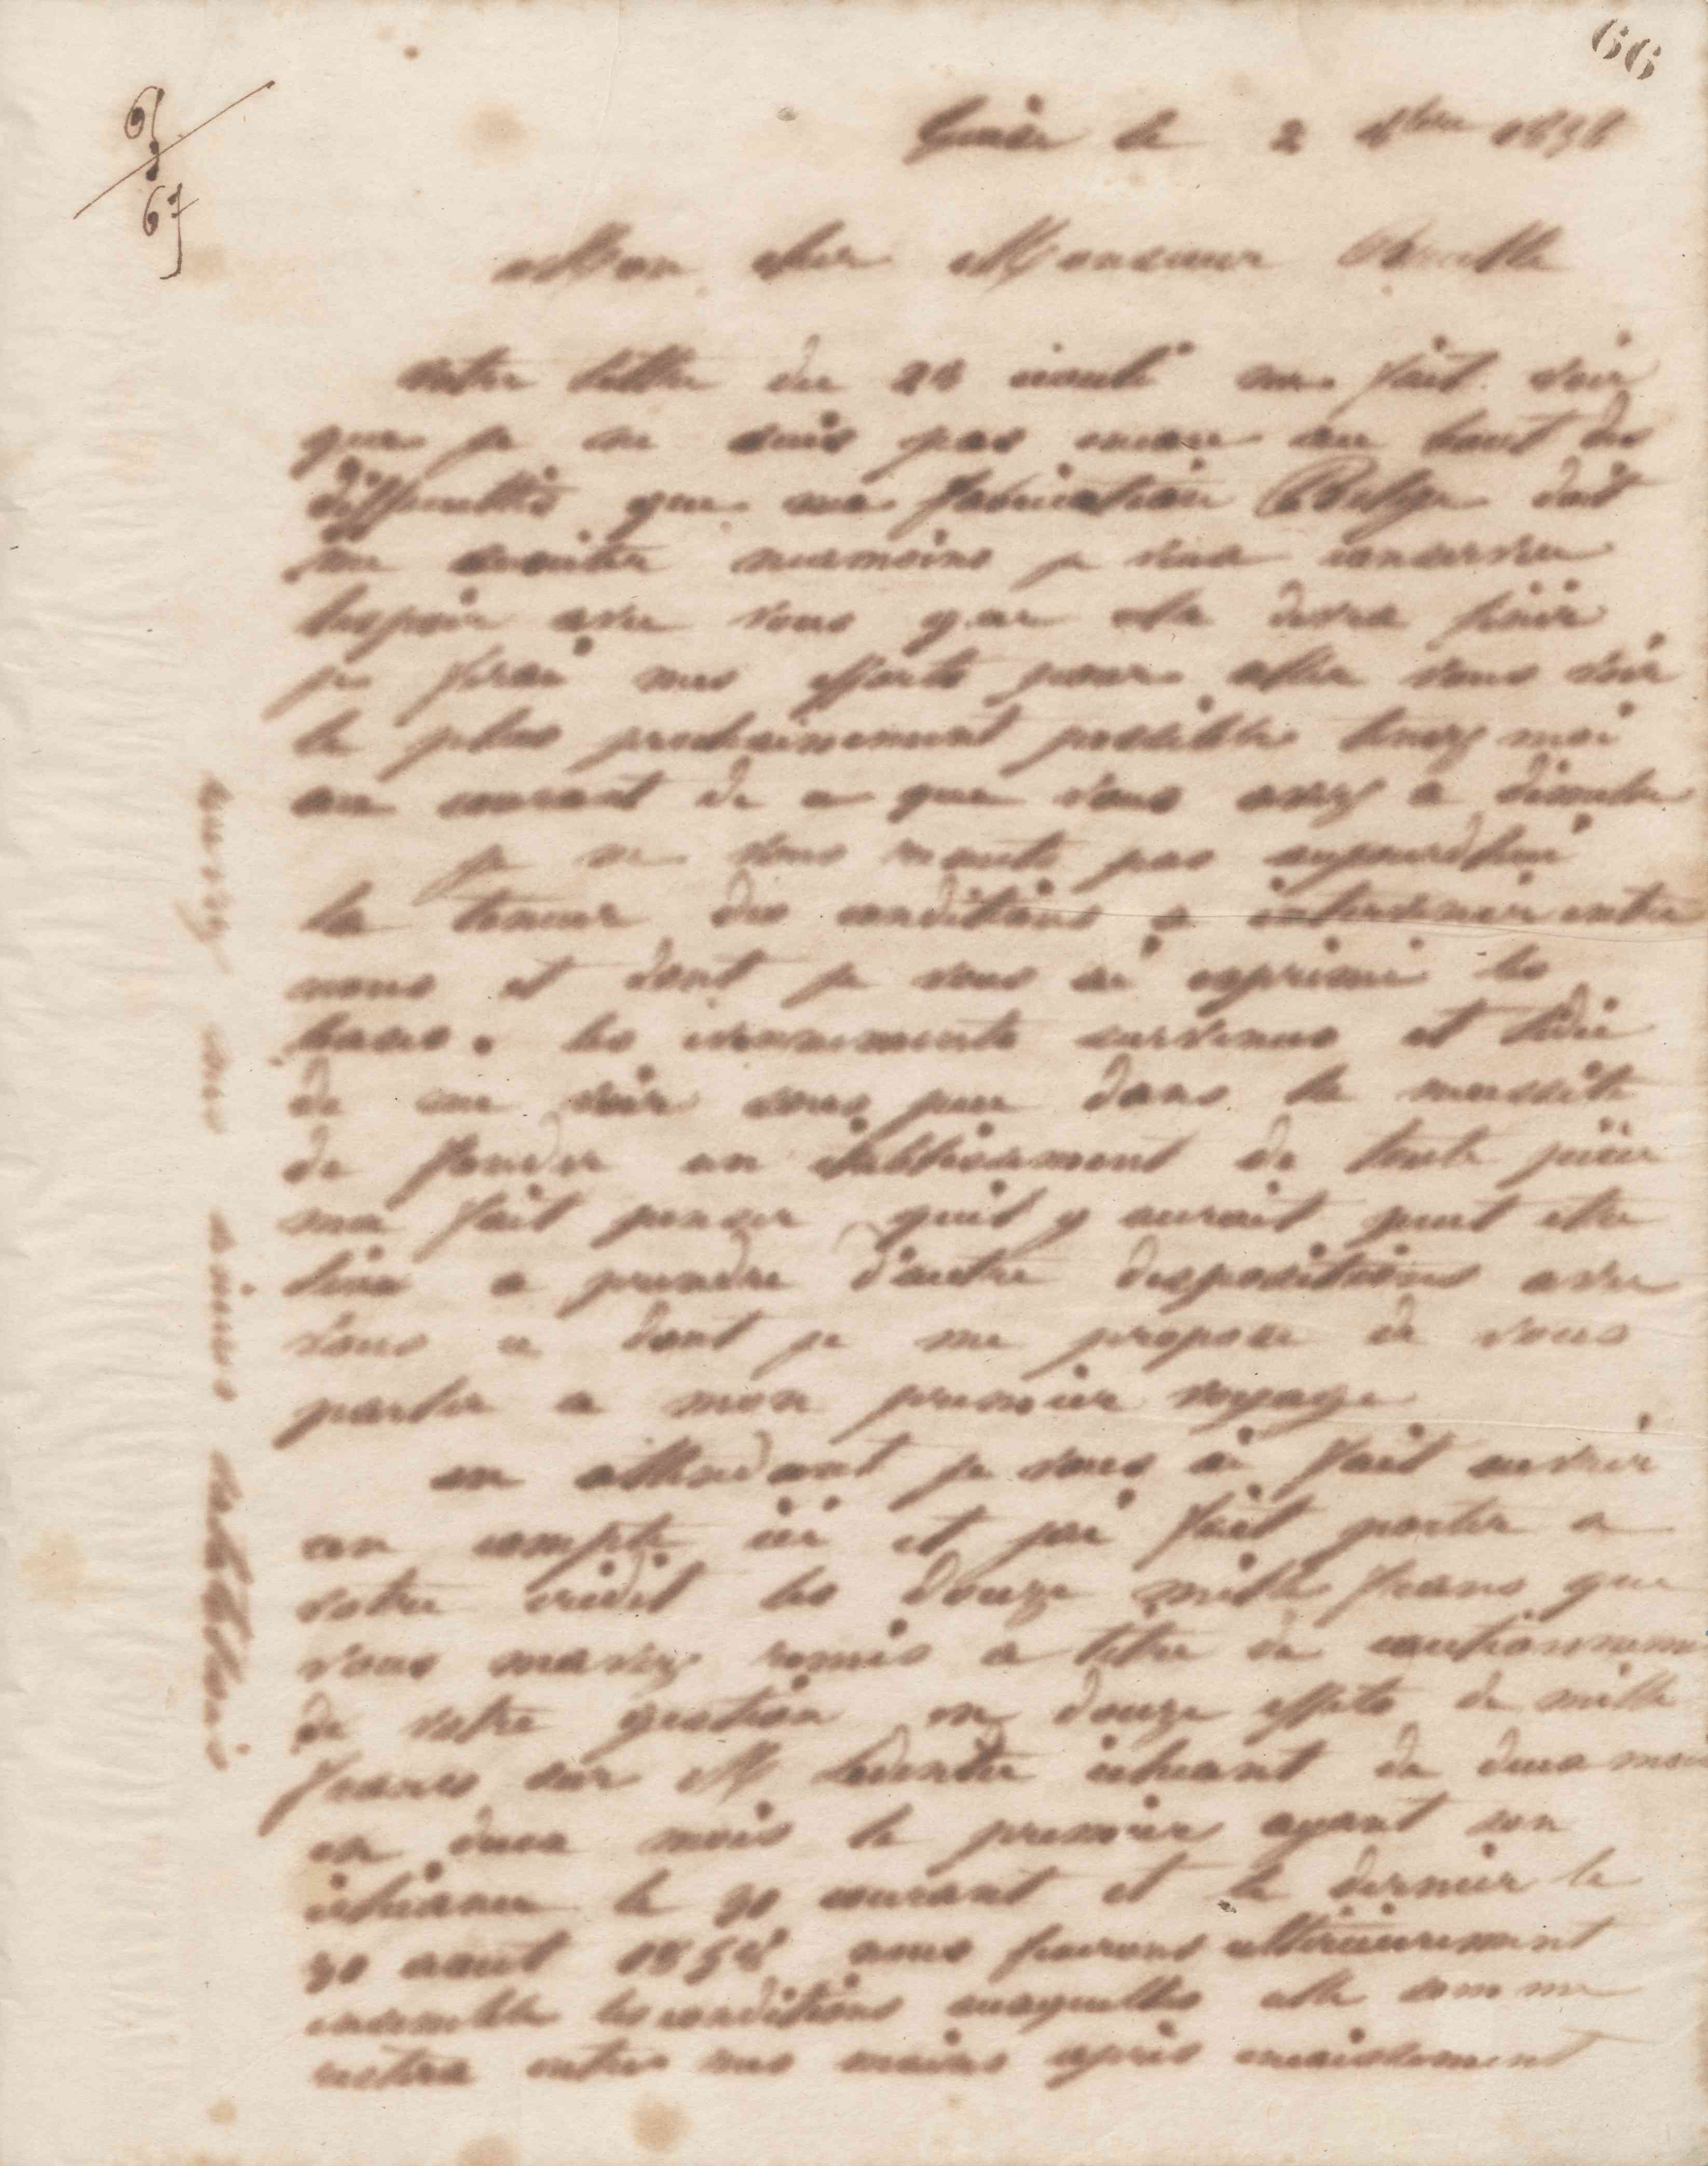 66
65
67
Guise le 2 8bre 185
Mon cher Monsieur
votre lettre du 28 écoulé me fait voir
que je ne suis pas encore au bout des
difficultés que ma fabrication Belge doit
me susciter neanmoins je veux conserver
lespoir avec vous que cela devra finir
je ferai mes efforts pour aller vous voir
le plus prochainement possible tenez moi
au courant de ce que vous avez a
je ne vous monte pas aujourdhui
la teneur des conditions a intervenir entre
nous et dont je vous ai exprimé les
bases. les evennements survenus et lidée
de me voir sous peu dans la nécessité
de fonder un établissement de toute pièce
ma fait penser quil y aurait peut etre
lieu a prendre dautre dispositions avec
vous ce dont je me propose de vous
parler a mon premier voyage
en attendant je vous ai fait ouvrir
un compte ici et jai fait porter a
votre crédit les douze mille francs que
vous mavez remis a titre de cautionneme
de votre gestion en douze effets de mille
francs sur M echeant de deux mois
en deux mois le premier ayant son
écheance le 30 courant et le dernier le
30 aout 185 nous fixerons ultérieurement
ensemble les conditions auxquelles cette somme
restera entre mes mains après encaissement